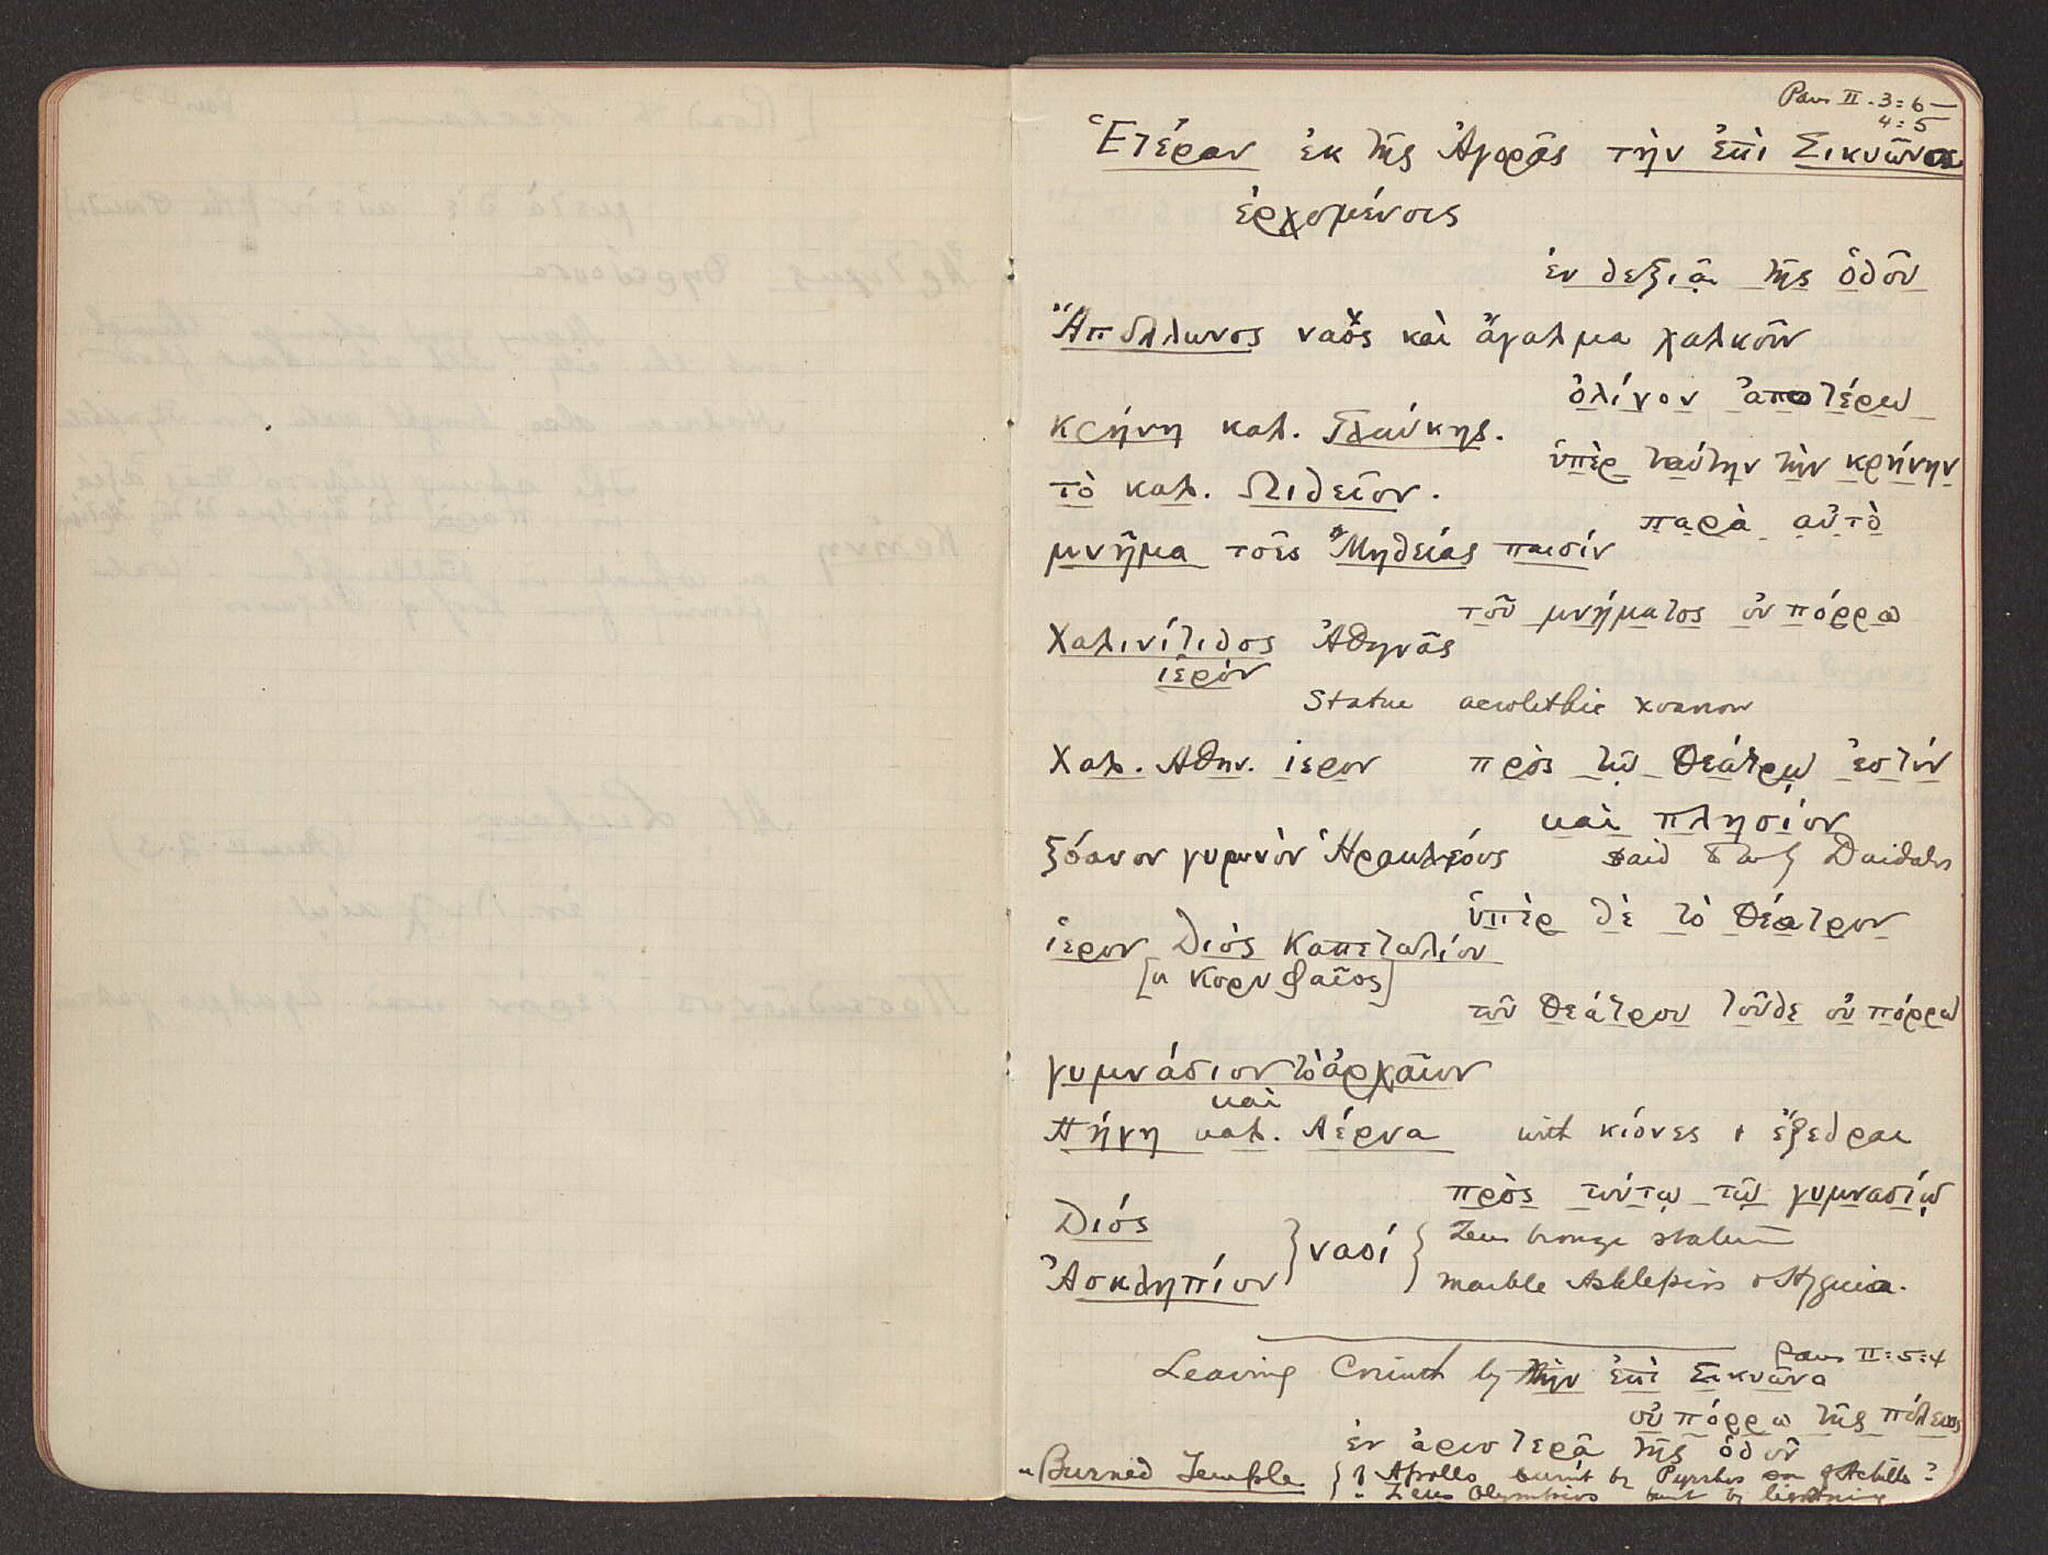 Paus II. 3:6 —
4:5
Ἑτέραν ἐκ τῆς Ἀγορᾶς τὴν ἐπὶ Σικυῶνα
ἐρχομένοις
ἐν δεξιᾷ τῆς ὁδοῦ
Ἀπόλλωνος ναὸς καὶ ἄγαλμα χαλκοῦν
ὀλίγον ἀπωτέρω
κρήνη καλ. Γλαύκης.
ὑπὲρ ταύτην τὴν κρήνην
τὸ καλ. Ωιδεῖον.
παρὰ αὐτὸ
μνῆμα τοῖς Μηδείας παισίν
τοῦ μνήματος οὐ πόρρω
Χαλινίτιδος Ἀθηνᾶς
ἱερόν
Statue acrolithic xoanon
Χαλ. Αθην. ιερον πρὸς τῷ θεάτρῳ ἐστίν
καὶ πλησίον
ξόανον γυμνὸν Ἡρακλέους said to be by Daidalos
ὑπὲρ δὲ τὸ θέατρον
ἱερον Διὸς Καπετωλίου
[ἢ Κορυφαῖος]
τοῦ θεάτρου τοῦδε οὐ πόρρω
γυμνάσιον τὸ ἀρχαῖον
καὶ
πήγη καλ. Λέρνα with κίονες + ἔξεδραι
πρὸς τούτῳ τῷ γυμνασίῳ
Διός
} ναοί { Zeus bronze statue
Ἀσκληπίου marble Asklepios + Hygieia.
Paus II:5:4
Leaving Corinth by τὴν ἐπὶ Σικυῶνα
οὐ πόρρω τῆς πόλεως
ἐν ἀριστερᾷ τῆς ὁδοῦ
"Burned Temple } ? Apollo burnt by Pyrrhos son of Achilles?
" Zeus Olympios burnt by lightning